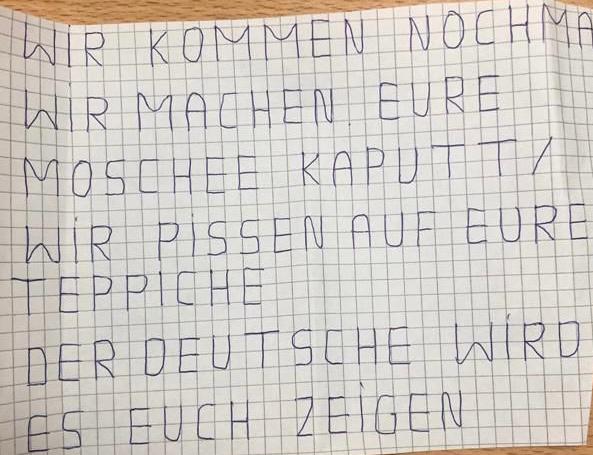 WIR KOMMEN NOCHMA
WIR MACHEN. EURE
MOSCHEE KAPUTT/
WIR PISSEN AUF EURE
TEPPICHE
DER DEUTSCHE WIRD
ES EUCH ZEIGEN